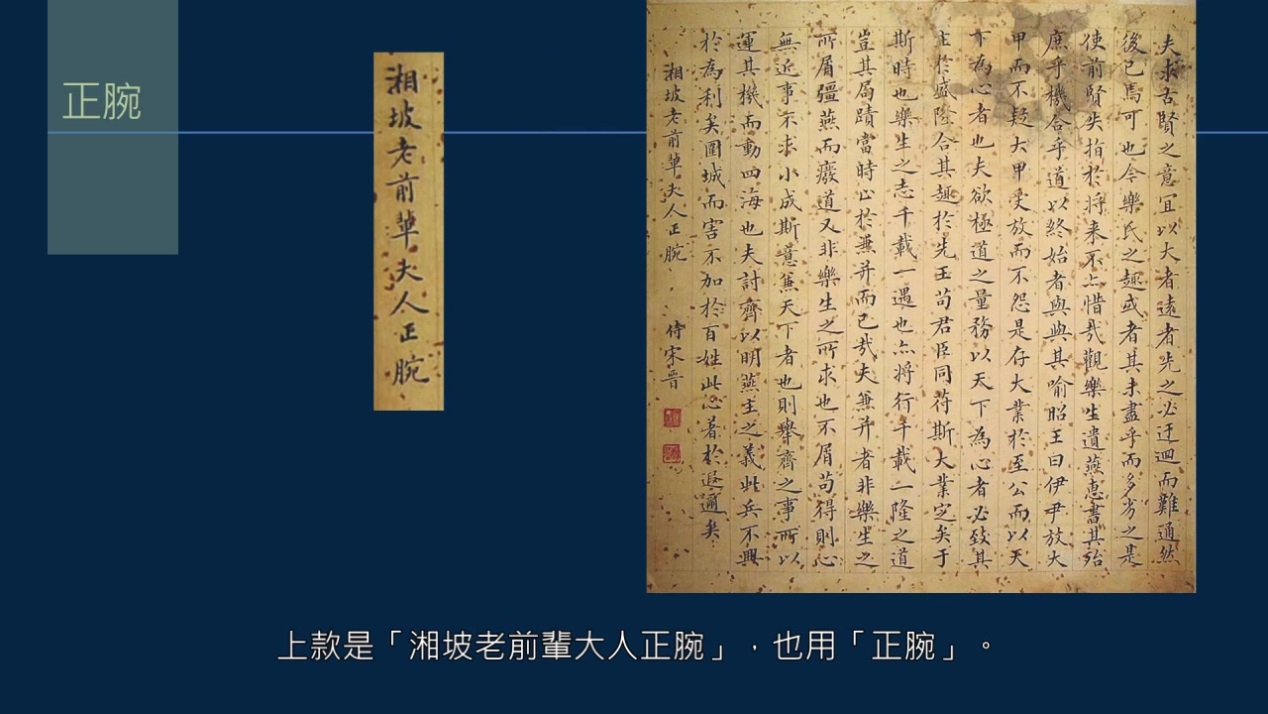 正腕
湘坡老前輩大人正腕
夫求古賢之意宜以大者遠者先之必迂迴而難通然
後已焉可也今樂氏之趣或者其未盡乎而多劣之是
使前賢失指於將来不亦惜哉觀樂生遺燕惠書其殆
庶乎機合乎道以終始者與與其喻昭王曰伊尹放大
甲而不疑大甲受放而不怨是存大業於至公而以天
下為心者也夫欲極道之量務以天下為心者必致其
主於盛隆合其趣於先王苟君臣同符斯大業定矣于
斯時也樂生之志千載一遇也亦將行千載一隆之道
豈其局蹟當時止於兼并而已哉夫兼并者非樂生之
所屑彊燕而廢道又非樂生之所求也不屑苟得則心
無近事不求小成斯意兼天下者也則舉齊之事所以
運其機而動四海也夫討齊以明燕主之義此兵不興
於為利矣圍城而害不加於百姓此心著於遐邇矣
湘坡老前輩大人正腕 侍宋晉
上款是「湘坡老前輩大人正腕」，也用「正腕」。